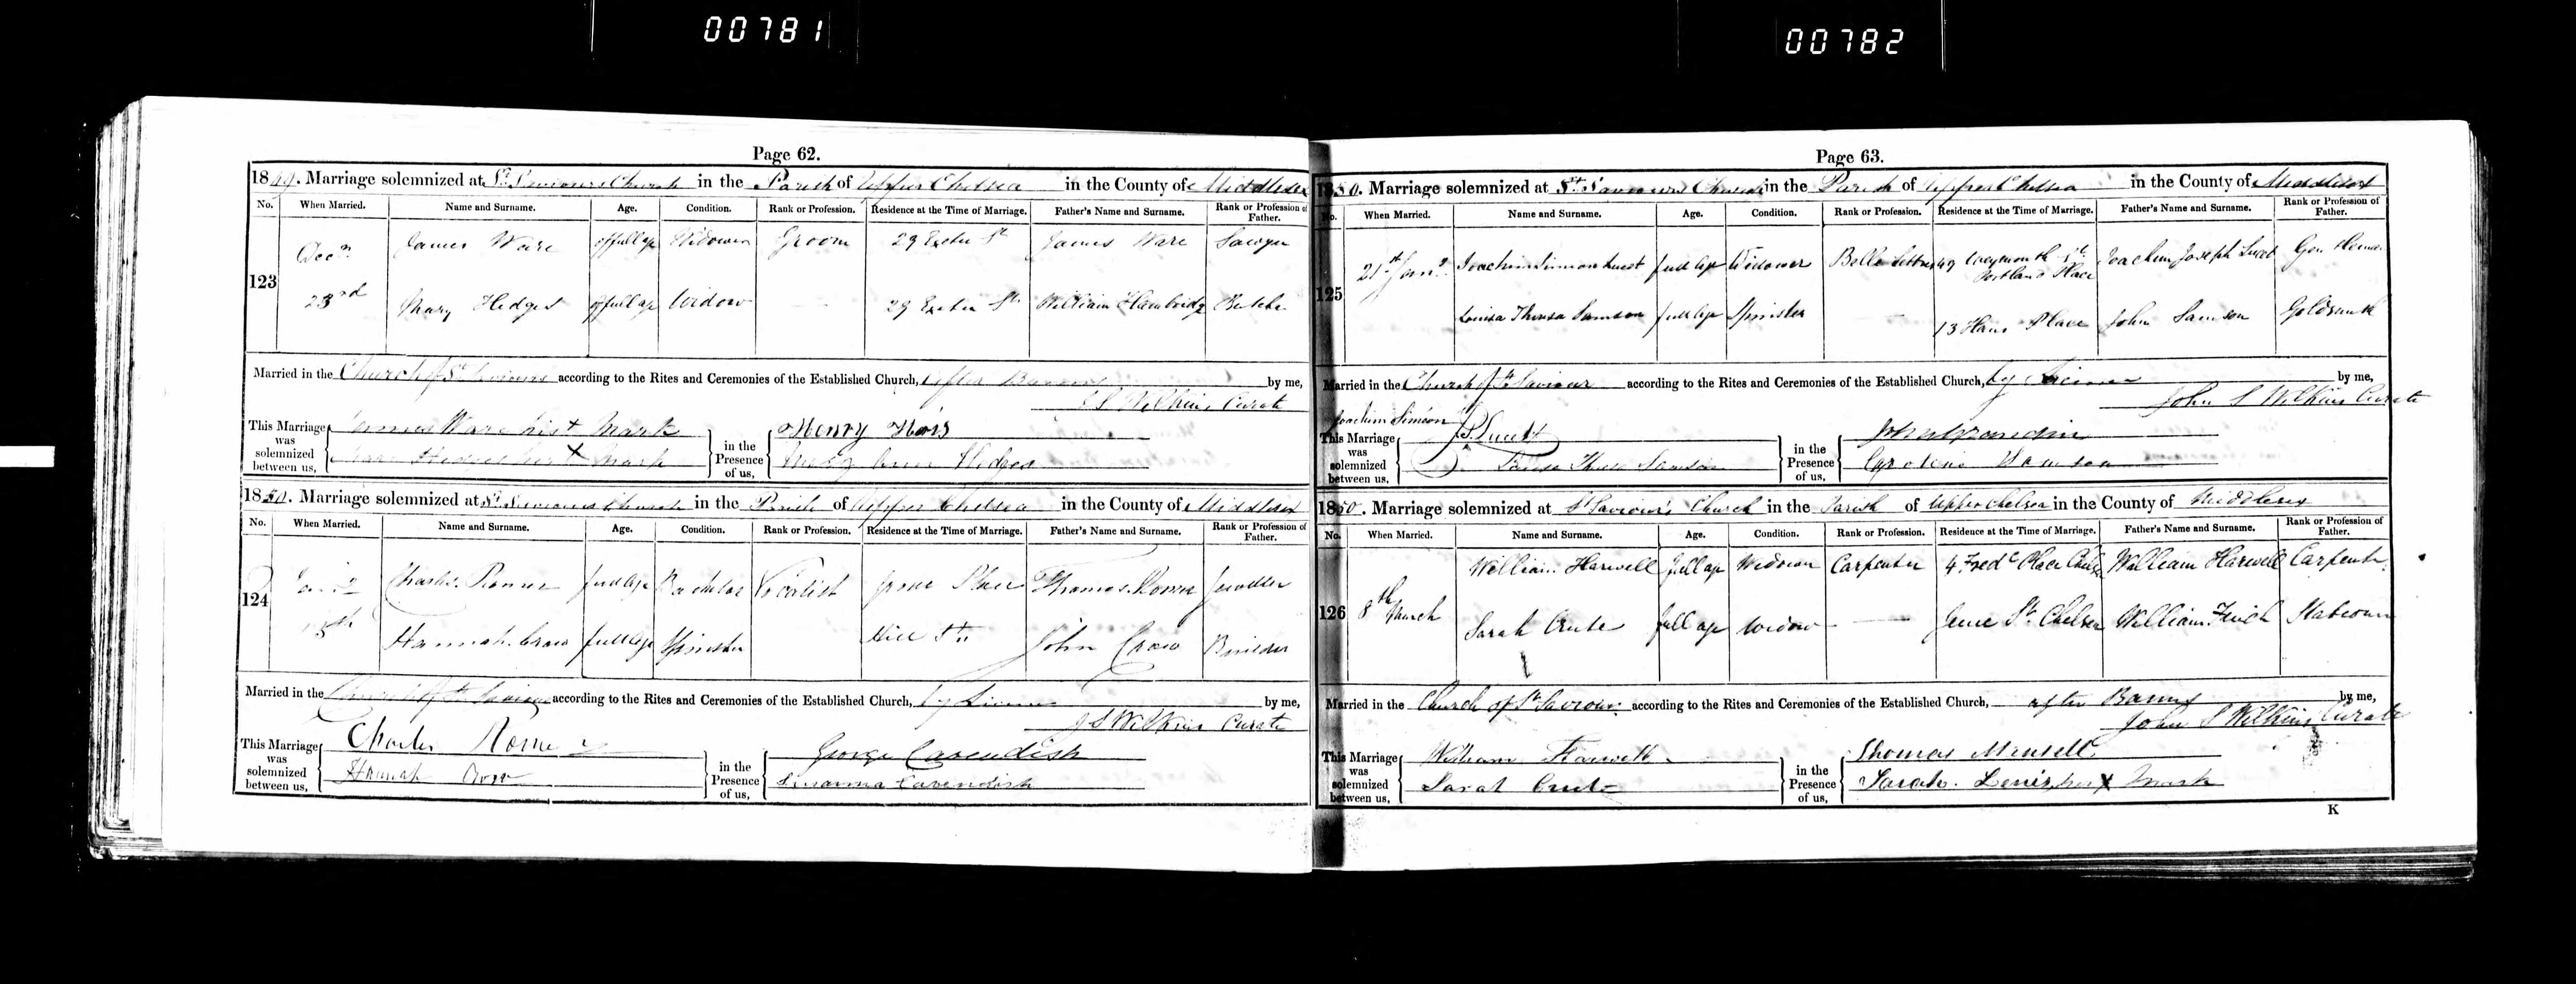 00781
00782
Page 62.
1849. Marriage solemnized at St. Saviours Church in the Parish of Upper Chelsea in the County of Middlesex
No. When Married. Name and Surname. Age. Condition. Rank or Profession. Residence at the Time of Marriage. Father's Name and Surname. Rank or Profession of Father.
123 Decr. 23rd
James Ware of full age Widower Groom 29 Exeter St. James Ware Sawyer
Mary Hedges of full age Widow 29 Exeter St. William Hambridge Butcher
Married in the Church of St Saviours according to the Rites and Ceremonies of the Established Church, after Banns by me,
J S Wilkins Curate
This Marriage was solemnized between us, James Ware his + Mark
Mary Hedges her X Mark
in the Presence of us, Henry
Mary Ann Hedges
1850. Marriage solemnized at St. Saviours Church in the Parish of Upper Chelsea in the County of Middlesex
No. When Married. Name and Surname. Age. Condition. Rank or Profession. Residence at the Time of Marriage. Father's Name and Surname. Rank or Profession of Father.
124
Charles Romer full age Bachelor Vocalist Place Thomas Romer Jeweller
Hannah Crow full age Spinster Hill St. John Crow Builder
Married in the Church of St Saviour according to the Rites and Ceremonies of the Established Church, by Licence by me,
J S Wilkins Curate
This Marriage was solemnized between us, Charles Romer
Hannah Crow
in the Presence of us, George Cavendish
Susanna Cavendish
Page 63.
1850. Marriage solemnized at St. Saviours Church in the Parish of Upper Chelsea in the County of Middlesex
No. When Married. Name and Surname. Age. Condition. Rank or Profession. Residence at the Time of Marriage. Father's Name and Surname. Rank or Profession of Father.
125
Joachim Simeon full age Widower Belle Lettres 49 Weymouth St. Portland Place Joachim Joseph Gentleman
Louisa Theresa Samson full age Spinster 13 Hans Place John Samson Goldsmith
Married in the Church of St Saviour according to the Rites and Ceremonies of the Established Church, by Licence by me,
John S Wilkins Curate
This Marriage was solemnized between us, Joachim Simeon
Louisa Theresa Samson
in the Presence of us,
Caroline Samson
1850. Marriage solemnized at St Saviour's Church in the Parish of Upper Chelsea in the County of Middlesex
No. When Married. Name and Surname. Age. Condition. Rank or Profession. Residence at the Time of Marriage. Father's Name and Surname. Rank or Profession of Father.
126 8th March
William Harwell full age Widower Carpenter 4 Fredc Place Chelsea William Harwell Carpenter
Sarah Crute full age Widow St. Chelsea William Finch
Married in the Church of St Saviour according to the Rites and Ceremonies of the Established Church, after Banns by me,
John S Wilkins Curate
This Marriage was solemnized between us, William Harwell
Sarah Crute
in the Presence of us, Thomas Mansell
Sarah Lewis her X Mark
K